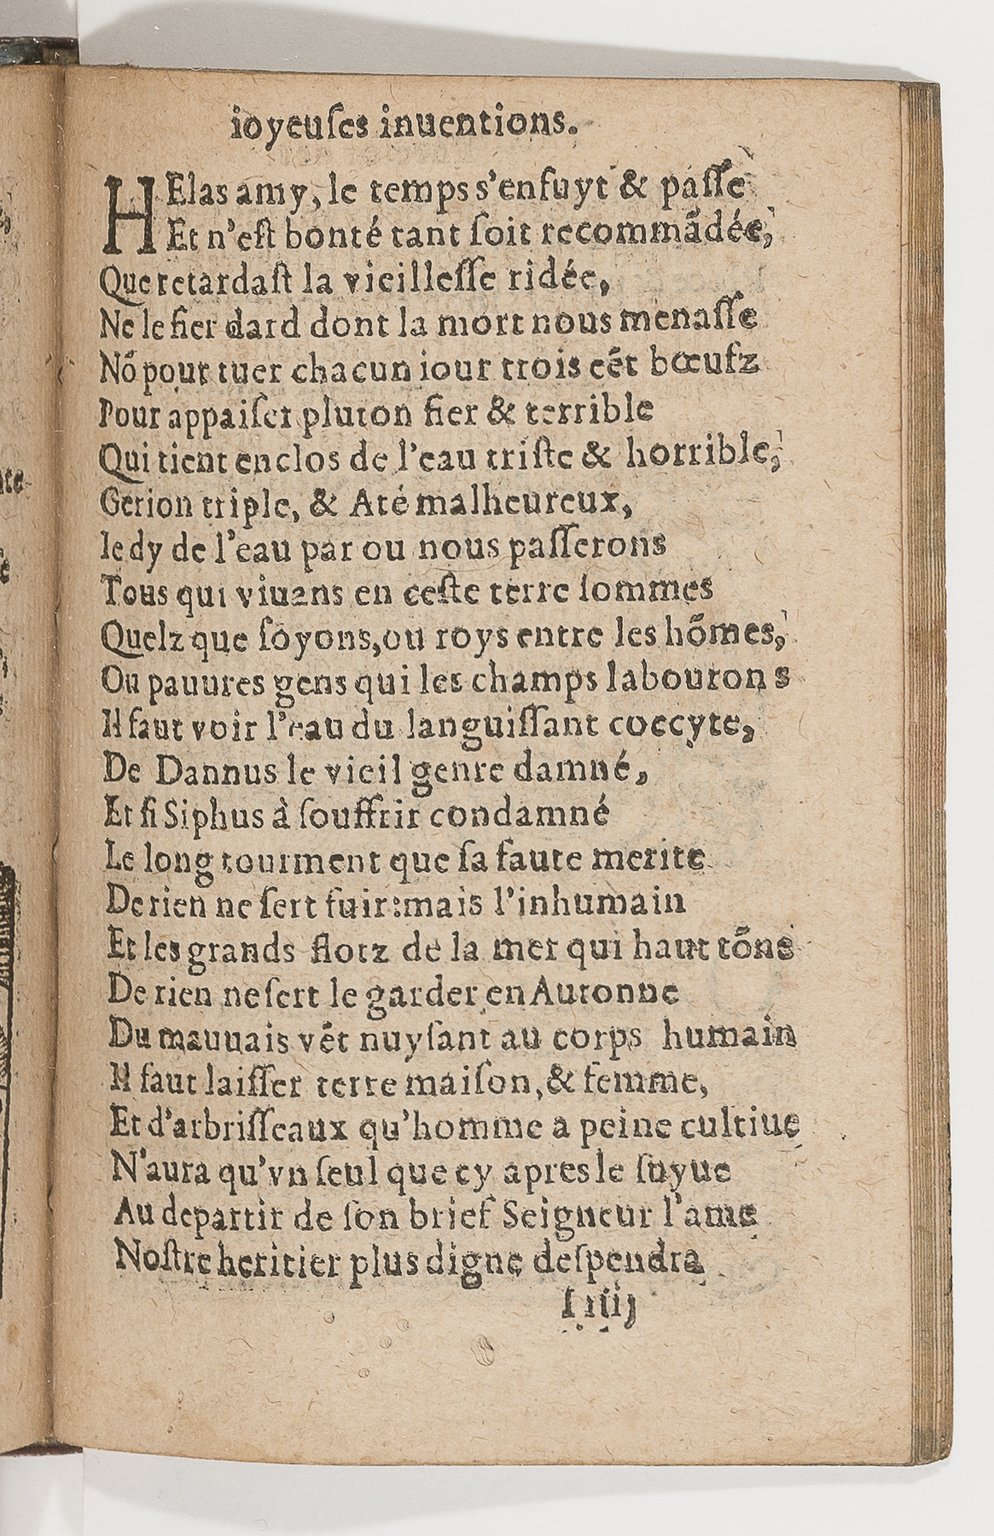 ioyeuſes inuentions.
HElas amy, le temps s'enfuyt & paſſe
Et n'eſt bonté tant ſoit recommãdée,
Que retardaſt la vieilleſſe ridée,
Ne le fier dard dont la mort nous menaſſe
Nõ pour tuer chacun iour trois cẽt bœufz
Pour appaiſer pluton fier & terrible
Qui tient enclos de l'eau triſte & horrible,
Gerion triple, & Até malheureux,
Ie dy de l'eau par ou nous paſſerons
Tous qui viuans en ceſte terre ſommes
Quelz que ſoyons, ou roys entre les hõmes,
Ou pauures gens qui les champs labourons
Il faut voir l'eau du languiſſant coccyte,
De Dannus le vieil genre damné,
Et ſi Siphus à ſouffrir condamné
Le long tourment que ſa faute merite
De rien ne ſert fuir:mais l'inhumain
Et les grands flotz de la mer qui haut tõne
De rien ne ſert le garder en Autonne
Du mauuais vẽt nuyſant au corps humain
Il faut laiſſer terre maiſon, & femme,
Et d'arbriſſeaux qu'homme a peine cultiue
N'aura qu'vn ſeul que cy apres le ſuyue
Au departir de ſon brief Seigneur l'ame
Noſtre heritier plus digne deſpendra
I iiij